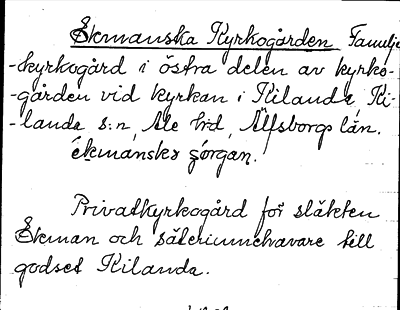 Ekmanska Kyrkogården Familje
-kyrkogård i östra delen av kyrko-
-gården vid kyrkan i Kilanda, Ki-
-landa s:n, Ale hd, Älfsborgs län.
ekmanska
Privatkyrkogård för släkten
Ekman och säteriinnehavare till
godset Kilanda.